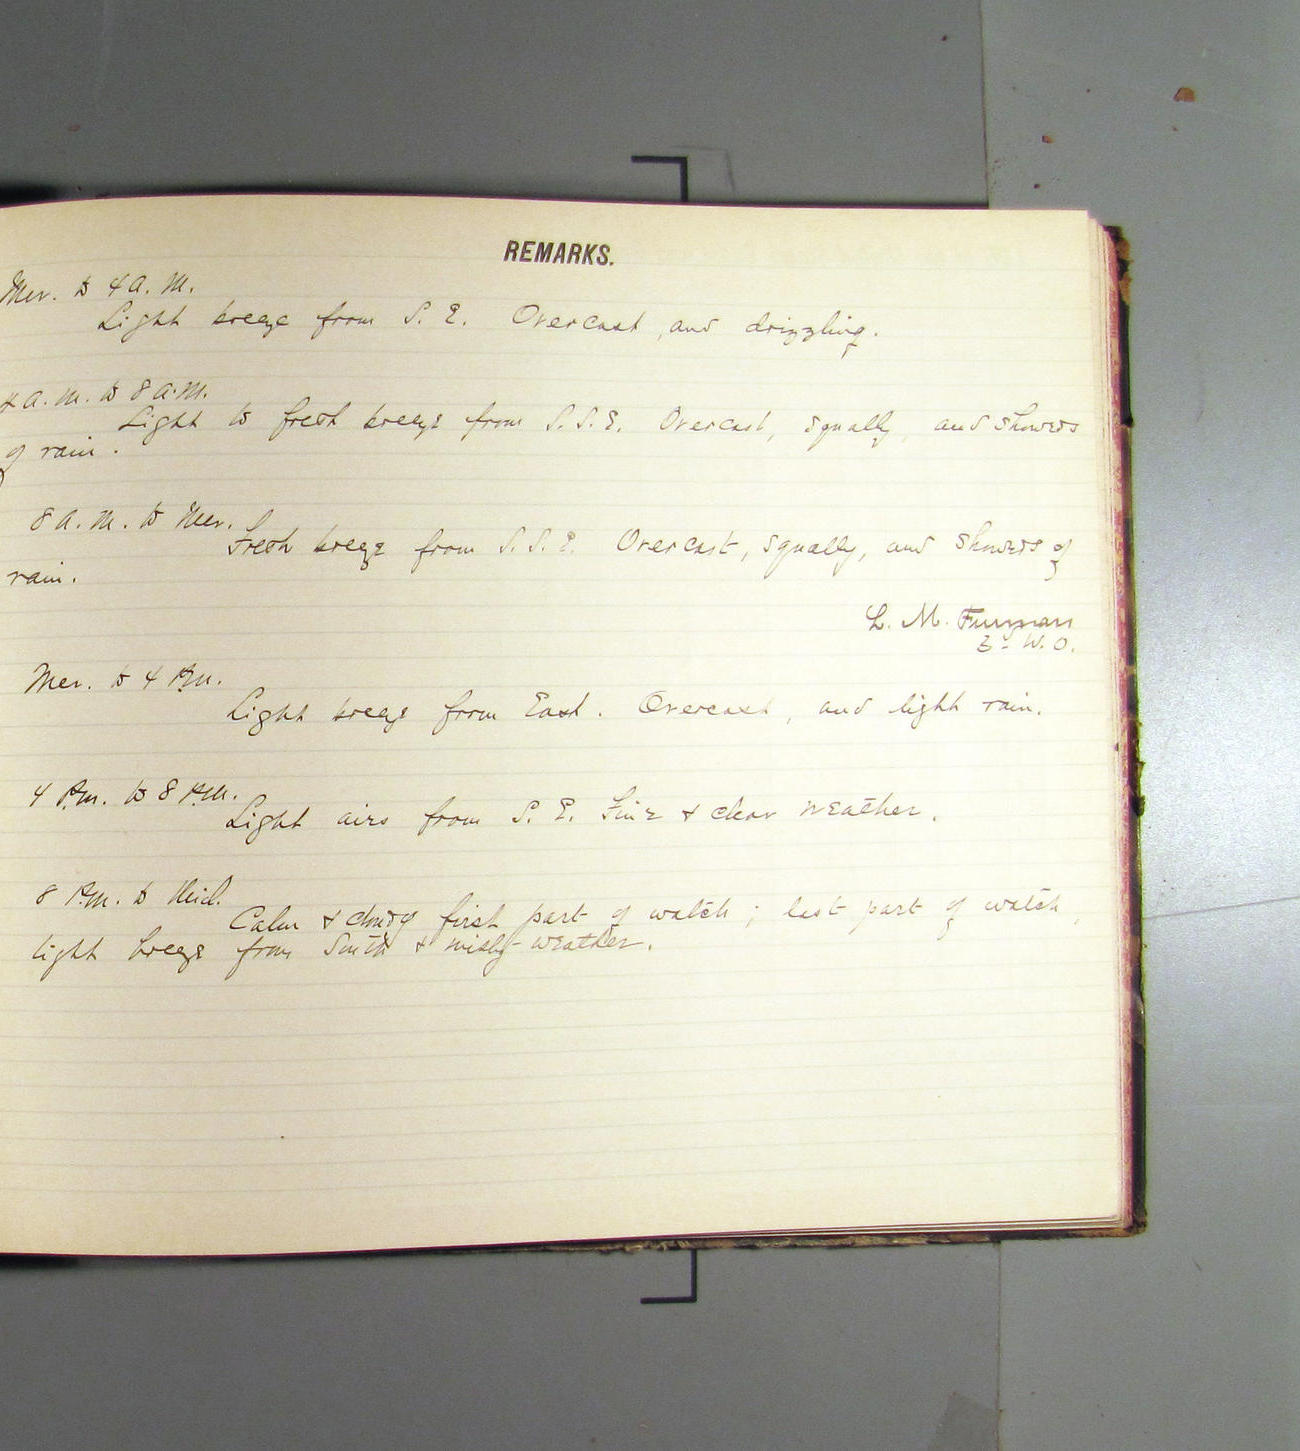 REMARKS.
Mer. to 4 a.m.
Light breeze from S. E. Overcast, and drizzling.
4 a.m. to 8 a.m.
Light to fresh breeze from S. S. E. Overcast, squally, and showers
of rain.
8 a.m. to Mer.
Fresh breeze from S. S. E. Overcast, squally, and showers of
rain.
L. M. Furman
W. O.
Mer. to 4 P.m.
Light breeze from East. Overcast, and light rain.
4 P.m. to 8 P.M.
Light airs from S. E. Fine & clear weather.
8 P.m. to Mid.
Calm & cloudy first part of watch; last part of watch
light breeze from South & misty weather.